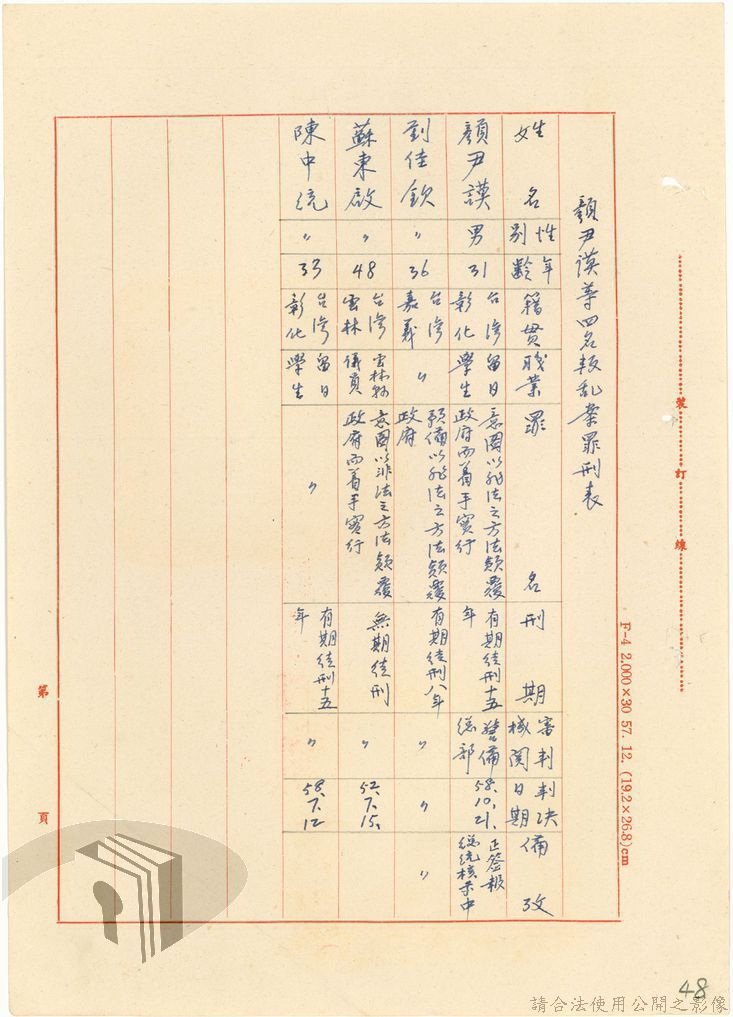 顏尹謨等四名叛乱案罪刑表
姓名 性別 年齡 籍貫 職業 罪名 刑期 審判機関 判决日期 備攷
顏尹謨 男 31 台湾彰化 留日學生 意圖以非法之方法顛覆政府而着手實行 有期徒刑十五年 警備總部 58.10.21. 正簽報總統核示中
劉佳欽 〃 36 台湾嘉義 〃 預備以非法之方法顛覆政府 有期徒刑八年 〃 〃 〃
蘇東啟 〃 48 台湾雲林 雲林縣議員 意圖以非法之方法顛覆政府而着手實行 無期徒刑 〃 52.7.15.
陳中統 〃 33 台湾彰化 留日學生 〃 有期徒刑十五年 〃 58.7.12
裝訂線
F-4 2,000×30 57. 12. (19.2×26.8)cm
第 頁
48
請合法使用公開之影像